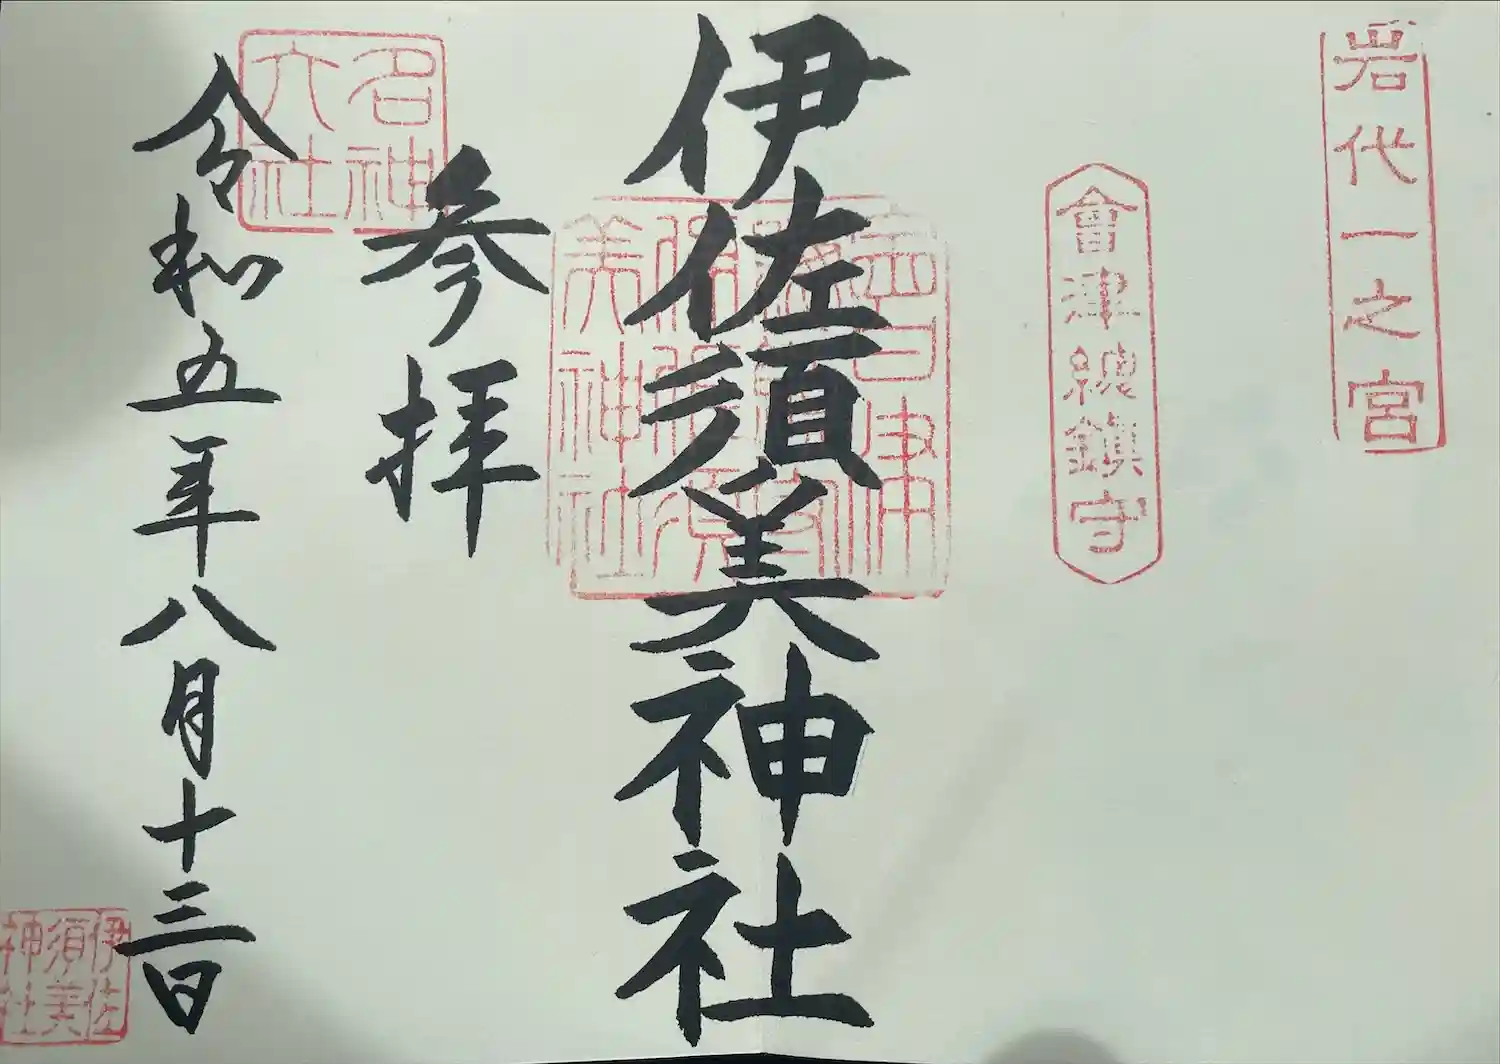 岩代一之宮
會津總鎮守
伊佐須美神社
参拝
名神
大社
令和五年八月十三日
伊佐
須美
神社